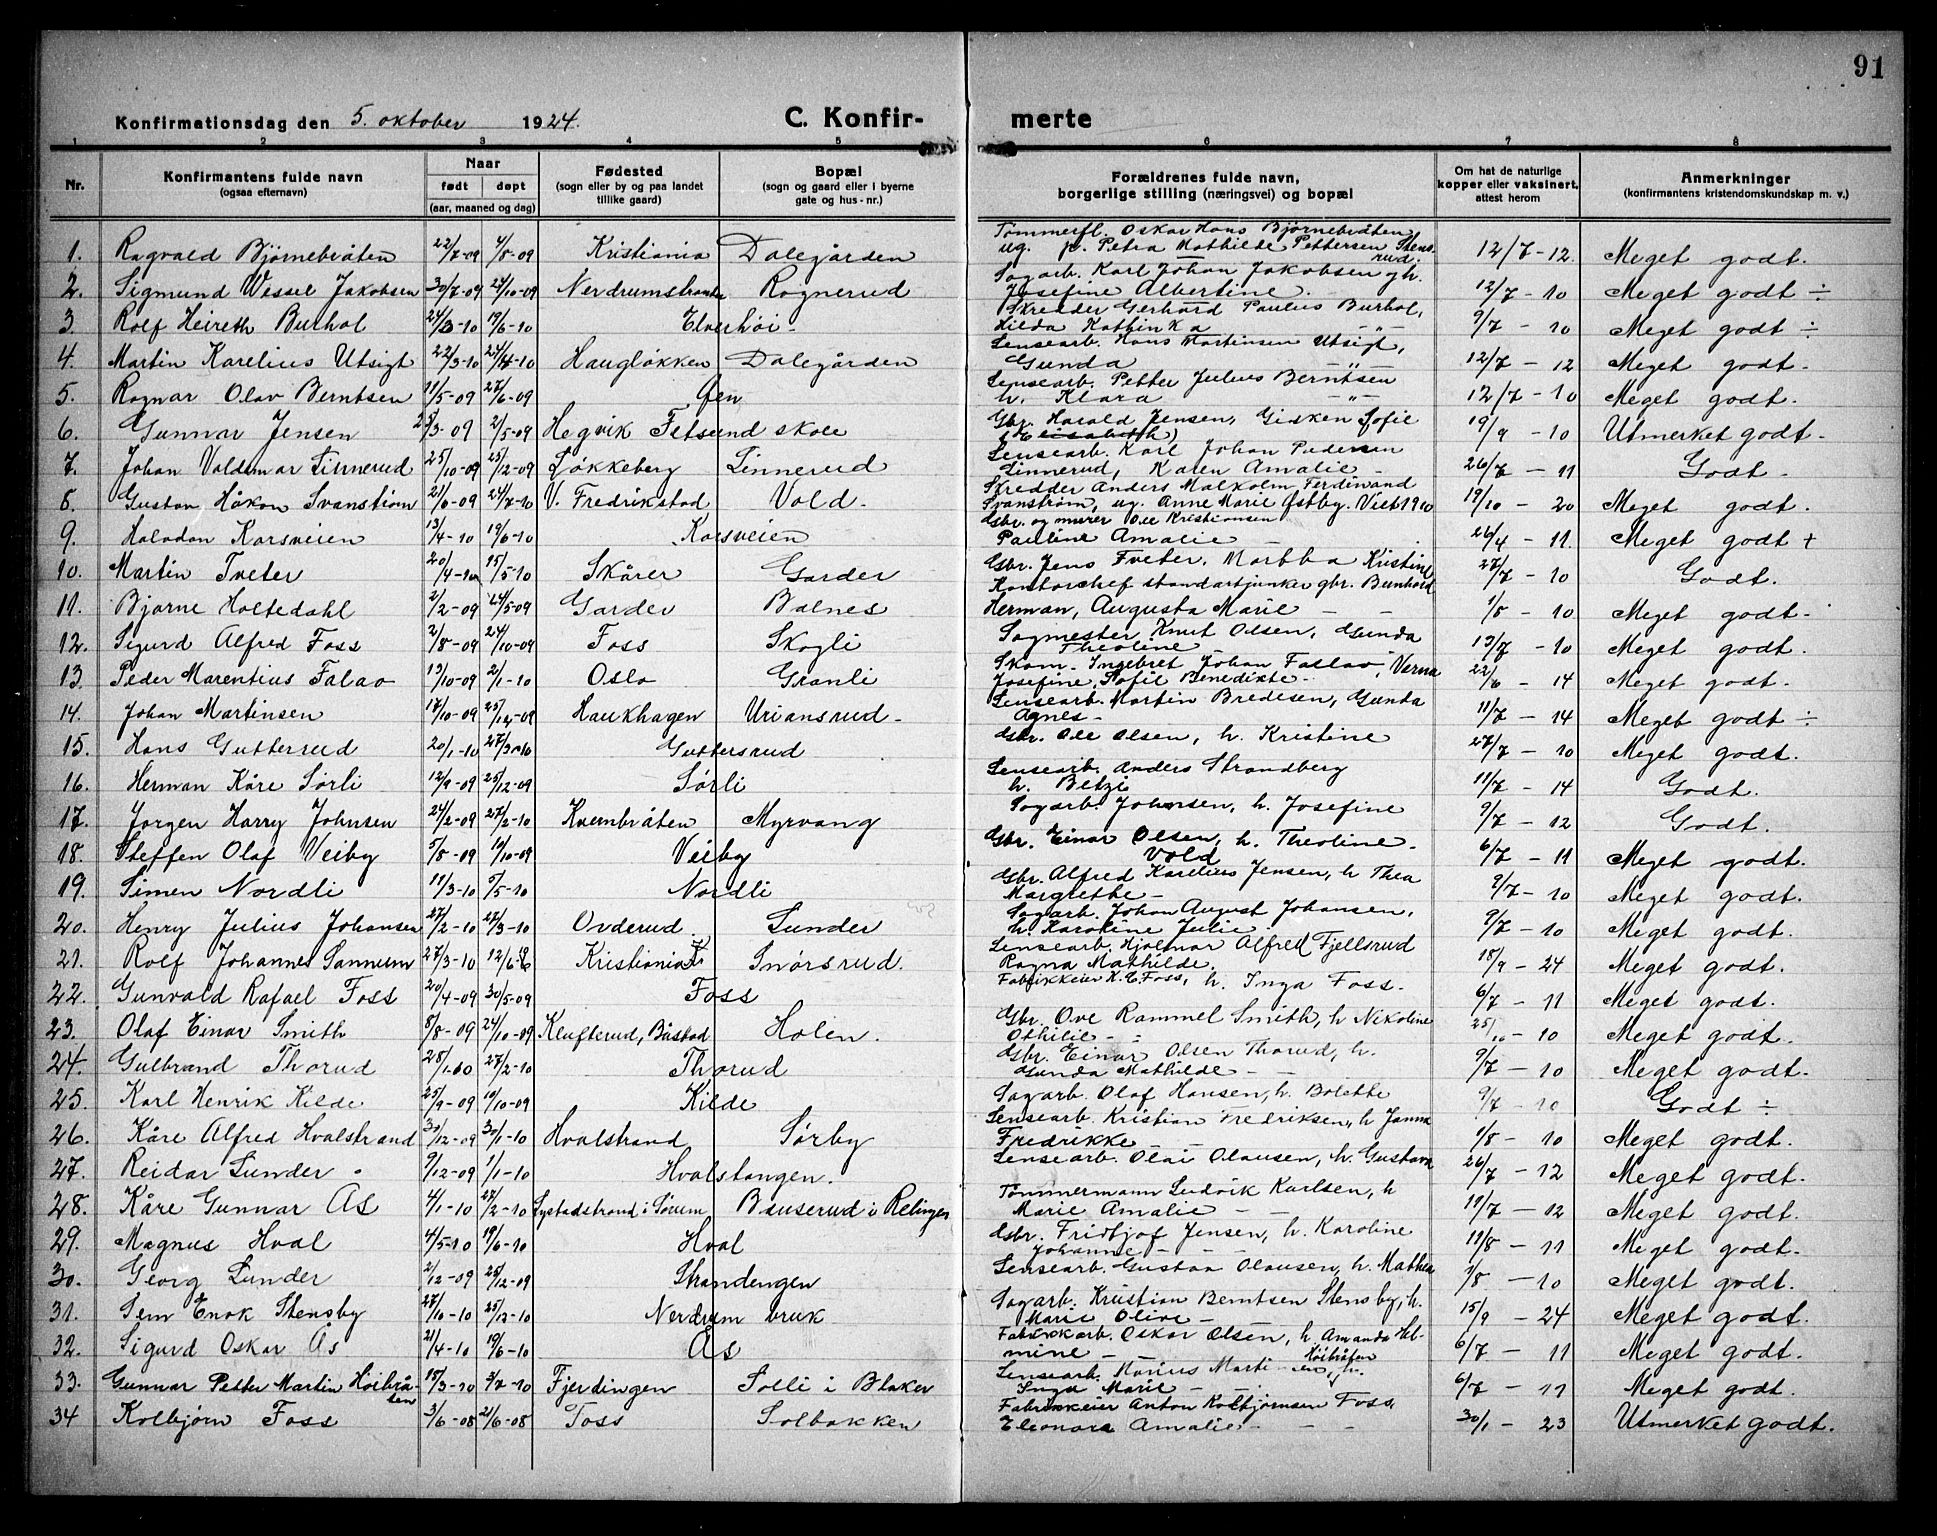 91
Konfirmationsdag den 5. oktober 1924. C. Konfir- merte
1 2 3 4 5 6 7 8
Nr. Konfirmantens fulde navn (ogsaa efternavn) Naar født døpt (aar, maaned og dag) Fødested (sogn eller by og paa landet tillike gaard) Bopæl (sogn og gaard eller i byerne gate og hus-nr.) Forældrenes fulde navn, borgerlige stilling (næringsvei) og bopæl Om hat de naturlige kopper eller vaksinert, attest herom Anmerkninger (konfirmantens kristendomskundskap m. v.)
1. Ragvald Bjørnebråten 22/7-09 4/8-09 Kristiania Dalegården Tømmerfl. Oskar Hans Bjørnebråten ug. p. Petra Mathilde Pettersen Stensrud. 12/7-12. Meget godt.
2. Sigmund Wessel Jakobsen 30/7-09 24/10-09 Nerdrumstranda Rognerud Sagarb. Karl Johan Jakobsen gh. Josefine Albertine. 12/7-10 Meget godt ÷
3. Rolf Heireth Burhol 24/3-10 19/6-10 Elverhøi - Skredder Gerhard Paulus Burhol, Hilda Kathinka -"- 9/7-10 Meget godt ÷
4. Martin Karelius Utsigt 22/3-10 24/4-10 Haugløkken Dalegården Lensearb. Hans Martinsen Utsigt, Gunda -"- 12/7-12 Meget godt.
5. Ragnar Olav Berntsen 11/5-09 27/6-09 Øen Lensearb. Petter Julius Berntsen h. Klara -"- 12/7-10 Meget godt.
6. Gunnar Jensen 25/3-09 2/5-09 Hegvik Fetsund skole Gbr. Harald Jensen, Gisken Sofie (Elisabeth) 19/9-10 Utmerket godt.
7. Johan Valdemar Linnerud 25/10-09 25/12-09 Løkkeberg Linnerud Lensearb. Karl Johan Pedersen Linnerud, Karen Amalie - 26/7-11 Godt.
8. Gustav Håkon Svanstrøm 21/6-09 24/7-10 V. Fredrikstad Vold. Skredder Anders Malkolm Ferdinand Svanstrøm, ug. Anne Marie Østby. Viet 1910 19/10-20 Meget godt.
9. Halvdan Korsveien 13/4-10 19/6-10 Korsveien Gbr. og murer Ole Kristiansen Pauline Amalie - 26/4-11. Meget godt +
10. Martin Tveter 20/4-10 15/5-10 Skårer Garder Gbr. Jens Tveter. Martha Kristine 27/7-10 Godt.
11. Bjarne Holtedahl 2/2-09 24/5-09 Garder Balnes Kontorchef standartjunker gbr. Bernhard Herman, Augusta Marie - - 1/8-10 Meget godt.
12. Sigurd Alfred Foss 2/8-09 24/10-09 Foss Skogli Sagmester Knut Olsen, Gunda Theoline - 13/7-10 Meget godt.
13. Peder Marentius Falao 13/10-09 2/1-10 Oslo Granli Skom. Ingebret Johan Faslao, Verna Josefine, Sofie Benedikte - 22/6-14 Meget godt.
14. Johan Martinsen 17/10-09 25/12-09 Haukhagen Uriansrud - Lensearb. Martin Bredesen, Gunda Agnes - 11/7-14 Meget godt ÷
15. Hans Guttersrud 20/1-10 27/3-10 Guttersrud Gbr. Ole Olsen, h. Kristine 27/7-10 Meget godt.
16. Herman Kåre Sørli 12/9-09 25/12-09 Sørli Lensearb. Anders Strandberg h. Betzi 11/7-14 Godt.
17. Jørgen Harry Johnsen 24/2-09 27/2-10 Kvernbråten Myrvang Sagarb. Johnsen, h. Josefine 9/7-12 Godt.
18. Steffen Olaf Veiby 5/8-09 10/10-09 Veiby Gbr. Einar Olsen, h. Theoline. Vold 6/7-11 Meget godt.
19. Simen Nordli 11/3-10 5/5-10 Nordli Gbr. Alfred Karelius Jensen, h Thea Margrethe - 9/7-10 Meget godt.
20. Henry Julius Johansen 27/2-10 27/3-10 Ovderud. Sunder Sagarb. Johan August Johansen, h. Karoline Julie. 9/7-10 Meget godt.
21. Rolf Johannes Sannum 27/3-10 12/6-10 Kristiania Snørsrud. Lensearb. Hjalmar Alfred Fjellsrud Ragna Mathilde. 18/9-24 Meget godt.
22. Gunvald Rafael Foss 20/4-09 30/5-09 Foss Fabrikkeier K. E. Foss, h. Inga Foss. 6/7-11 Meget godt.
23. Olaf Einar Smith 8/8-09 24/10-09 Klufterud, Båstad Holen. Gbr. Ove Rammel Smith, h Nikoline Othilie - - 25/10-10 Meget godt.
24. Gulbrand Thorud 28/1-10 27/2-10 Thorud Gbr. Einar Olsen Thorud, h. Gunda Mathilde - - 9/7-10 Meget godt.
25. Karl Henrik Kilde 25/9-09 10/10-09 Kilde Sagarb. Olaf Hansen, h. Bolette 9/7-10 Godt ÷
26. Kåre Alfred Hvalstrand 30/12-09 30/1-10 Hvalstrand Sørby Lensearb. Kristian Fredriksen, h Janna Fredrikke 1/8-10 Meget godt.
27. Reidar Sunder 9/12-09 1/1-10 Hvalstangen. Lensearb. Olai Olausen, h. Gustava 26/7-12 Meget godt.
28. Kåre Gunnar Ås 4/1-10 27/2-10 Lystadstrand i Sørum Bruserud i Relingen Tømmermann Ludvik Karlsen, h Marie Amalie - - 19/7-12 Meget godt.
29. Magnus Hval 4/5-10 19/6-10 Hval Gbr. Fridtjof Jensen, h. Karoline Johanne - - 11/8-11 Meget godt.
30. Georg Sunder 2/12-09 25/12-09 Strandengen Lensearb. Gustav Olausen, h. Mathea 1/8-10 Meget godt.
31. Sem Enok Stensby 27/10-10 25/12-10 Nerdrum bruk Sagarb. Kristian Berntsen Stensby, h. Marie Olive - 15/9-24 Meget godt.
32. Sigurd Oskar Ås 2/4-10 19/6-10 Ås Fabrikkarb. Oskar Olsen, h. Amanda Helmine - - 6/7-11 Meget godt.
33. Gunnar Petter Martin Høibråten 15/3-10 3/7-10 Fjerdingen Solli i Blaker Lensearb. Marius Martinsen Høibråten, h. Inga Marie - - 6/7-11 Meget godt.
34 Kolbjørn Foss 3/6-08 21/6-08 Foss Solbakken Fabrikkeier Anton Kolbjørnsen Foss, Eleonora Amalie - - - 30/1-23 Utmerket godt.